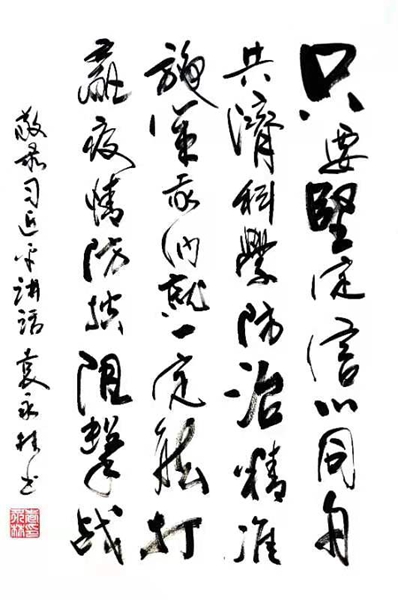 只要堅定信心同舟
共濟科學防治精准
施策我们就一定能打
赢疫情防控阻擊战
敬录习近平讲话 袁永林书